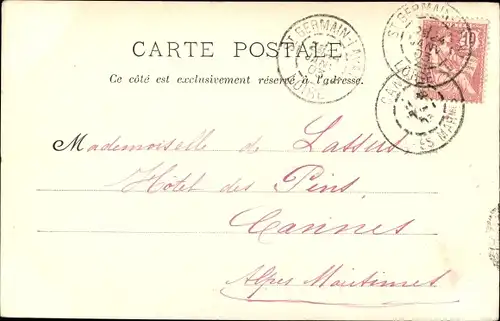 CARTE POSTALE
Ce côté est exclusivement réservé à l'adresse.
ST GERMAIN-LAVAL
LOIRE
ST GERMAIN
LOIRE
10
Mademoiselle de Lassus
Hôtel des Pins
Cannes
Alpes Maritimes